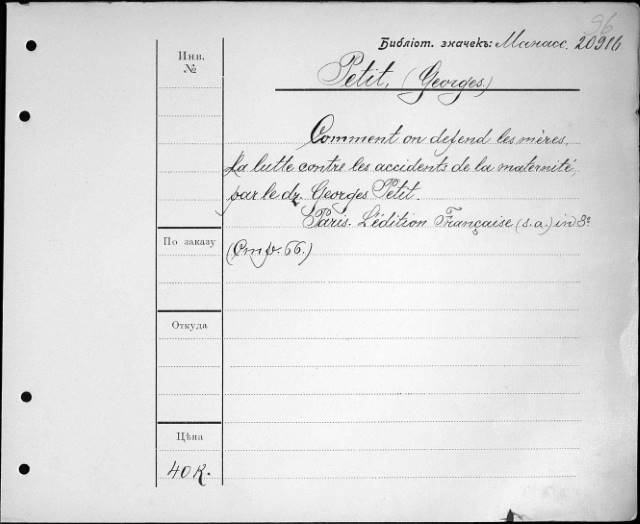 96
Библіот. значекъ: Манасс. 20916
Инв.
№
Petit, (Georges.)
Comment on défend les mères.
La lutte contre les accidents de la maternité,
par le dr. Georges Petit.
Paris. L'édition Française (s.a.) in 8º
По заказу
(Стр. 66.)
Откуда
Цѣна
40 к.